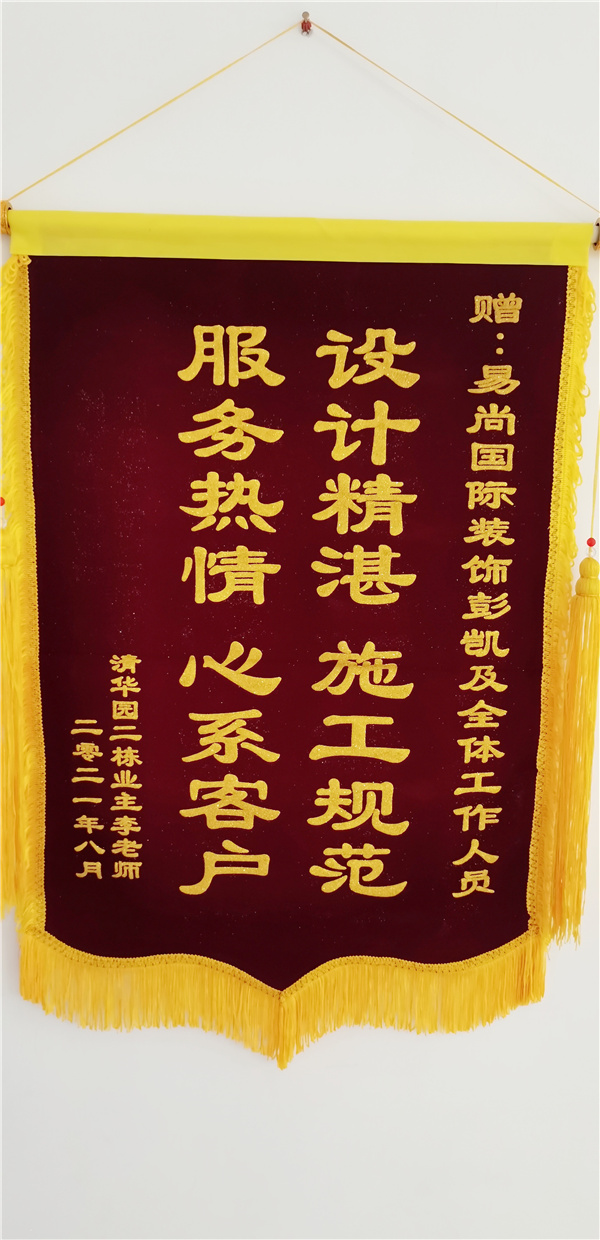 赠：易尚国际装饰彭凯及全体工作人员
设计精湛 施工规范
服务热情 心系客户
清华园二栋业主李老师
二零二一年八月